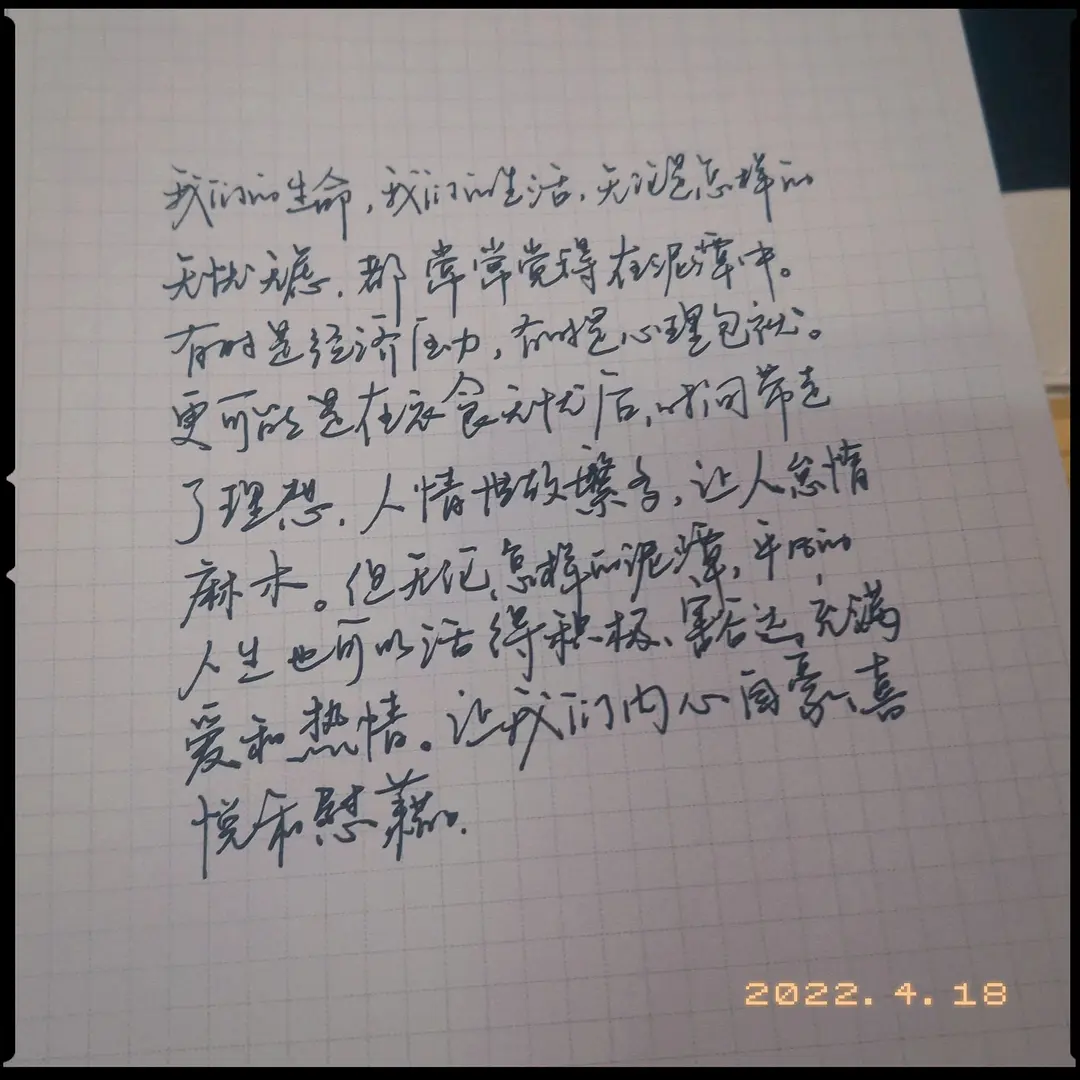 我们的生命，我们的生活，无论是怎样的
无忧无虑，都常常觉得在泥潭中。
有时是经济压力，有时是心理包袱。
更可能是在衣食无忧后，时间带走
了理想，人情世故繁多，让人怠惰
麻木。但无论怎样的泥潭，平凡的
人生也可以活得积极、豁达，充满
爱和热情。让我们内心自豪、喜
悦和慰藉。
2022.4.18